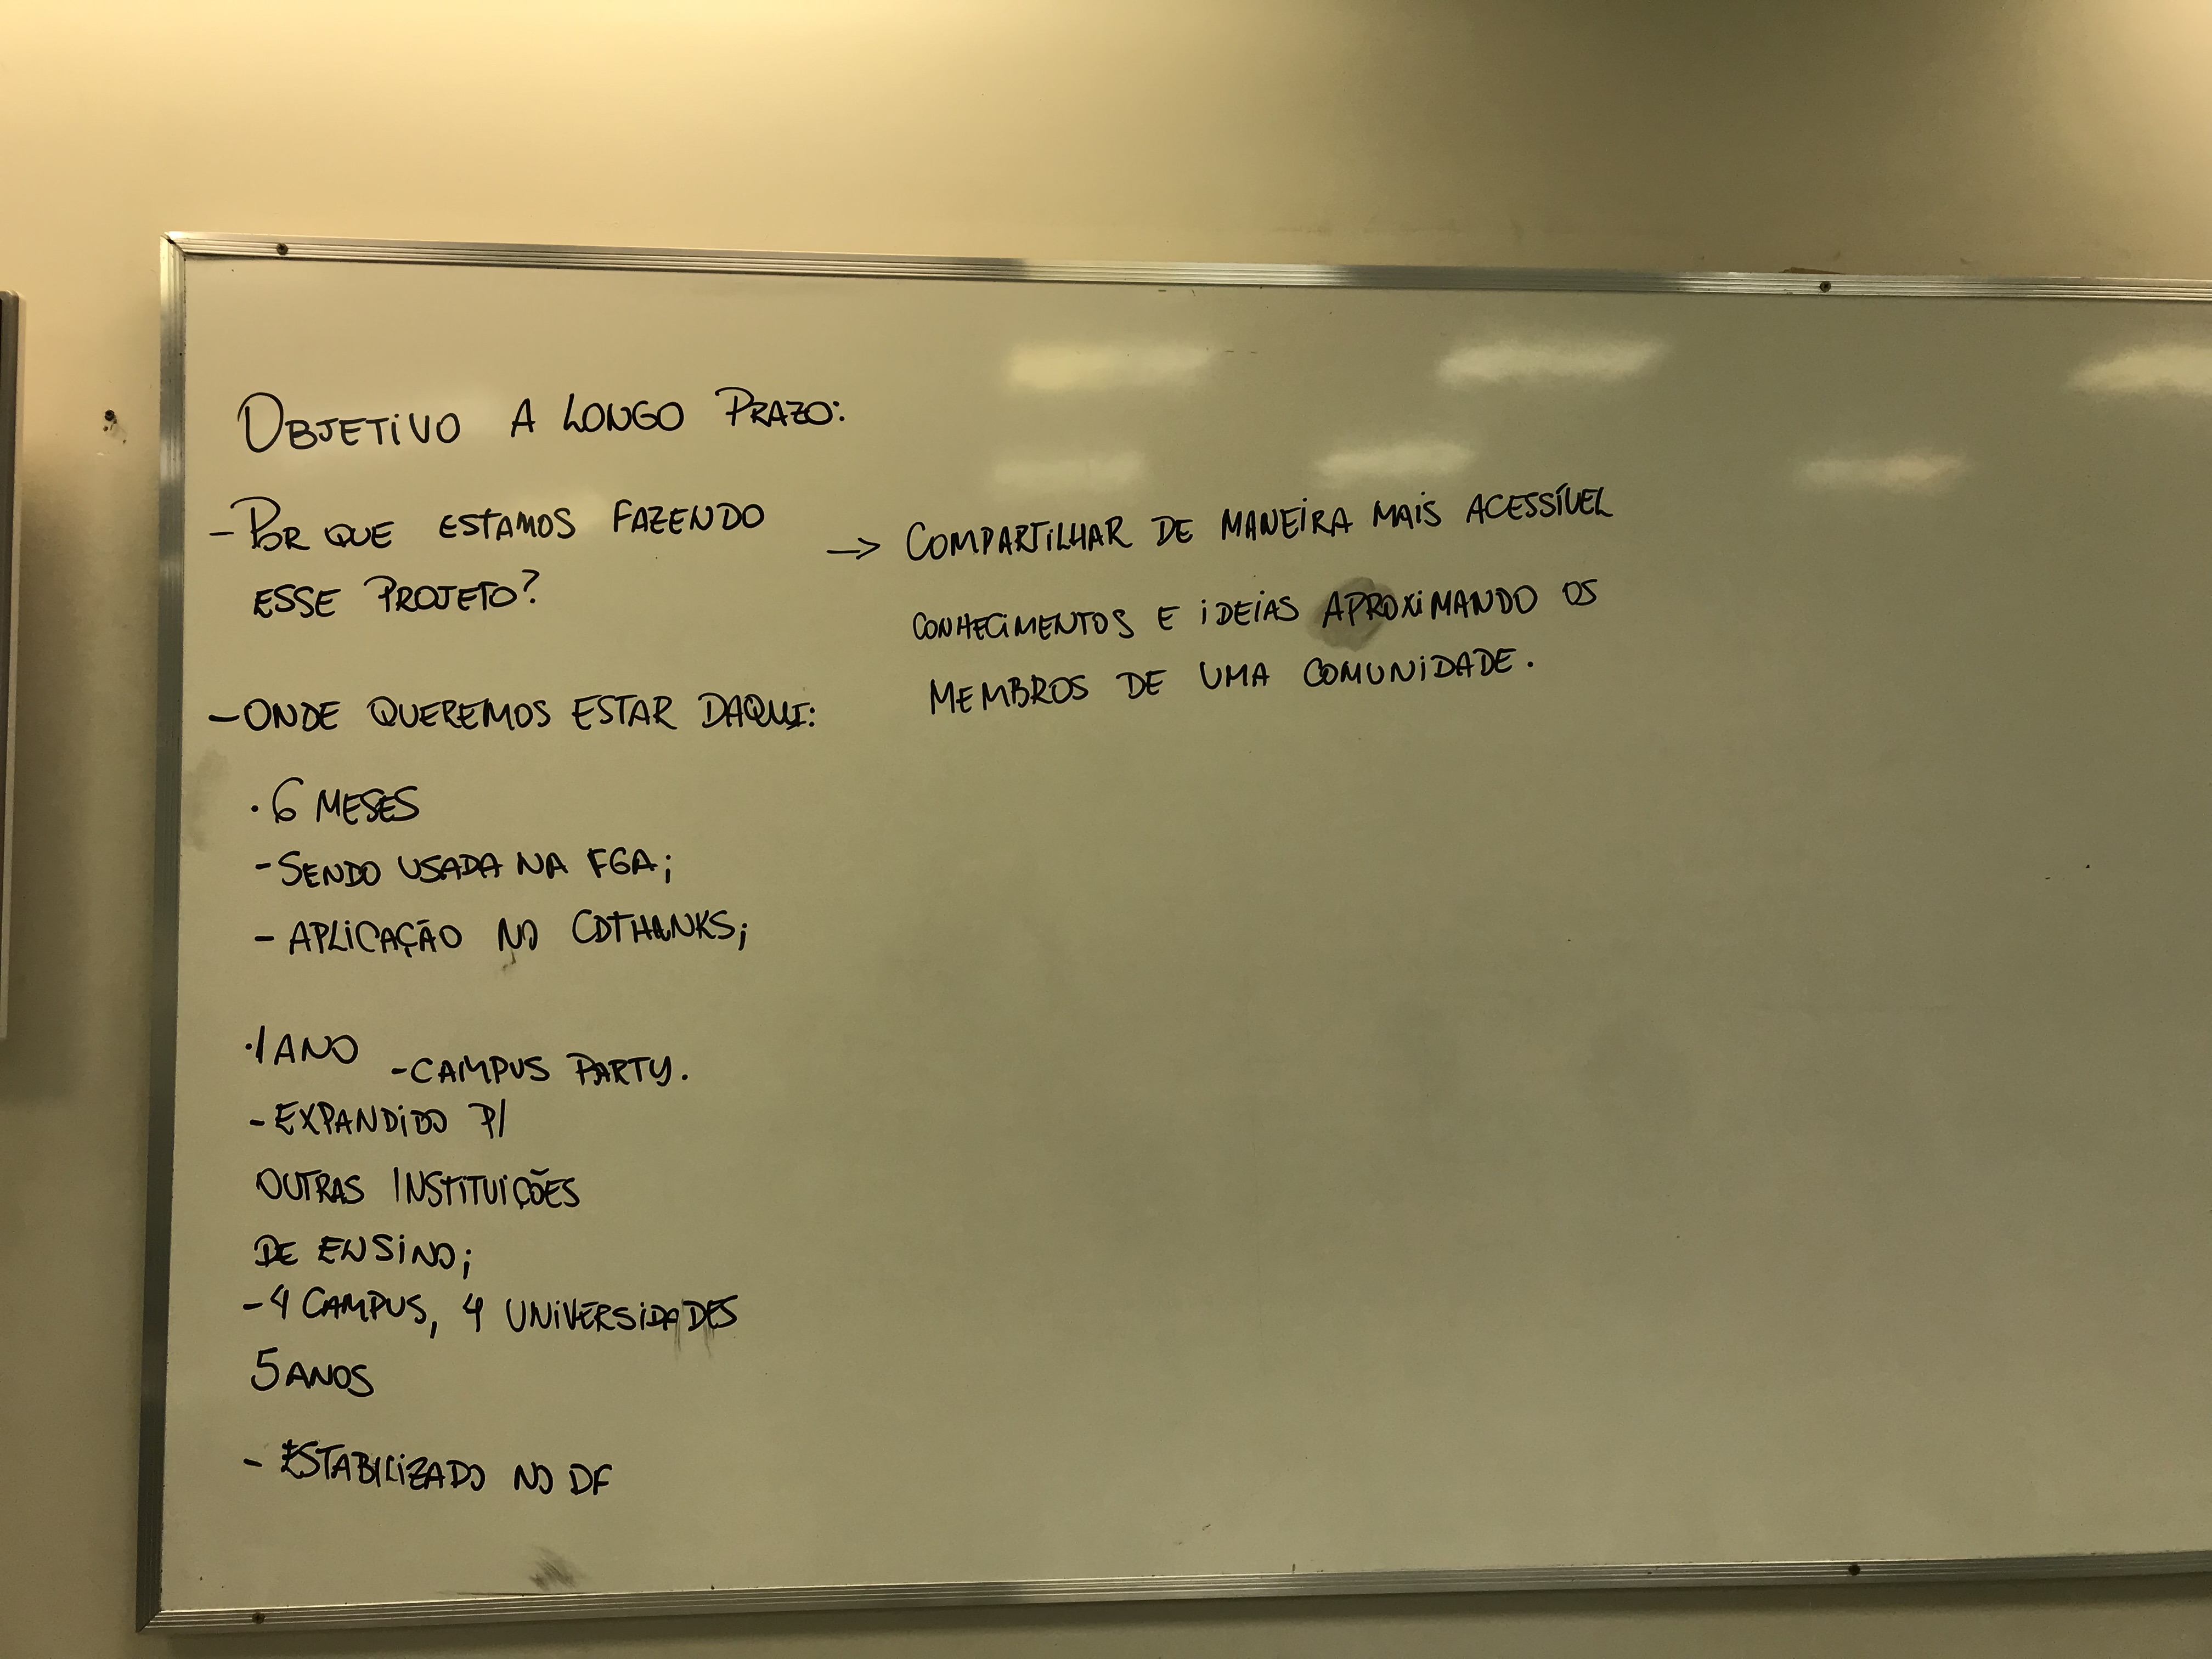 OBJETIVO A LONGO PRAZO:
- POR QUE ESTAMOS FAZENDO
ESSE PROJETO?
→ COMPARTILHAR DE MANEIRA MAIS ACESSÍVEL
CONHECIMENTOS E IDEIAS APROXIMANDO OS
MEMBROS DE UMA COMUNIDADE.
- ONDE QUEREMOS ESTAR DAQUI:
· 6 MESES
- SENDO USADA NA FGA;
- APLICAÇÃO NO CDTHANKS;
· 1 ANO
- CAMPUS PARTY.
- EXPANDIDO P/
OUTRAS INSTITUIÇÕES
DE ENSINO;
- 4 CAMPUS, 4 UNIVERSIDADES
5 ANOS
- ESTABILIZADO NO DF